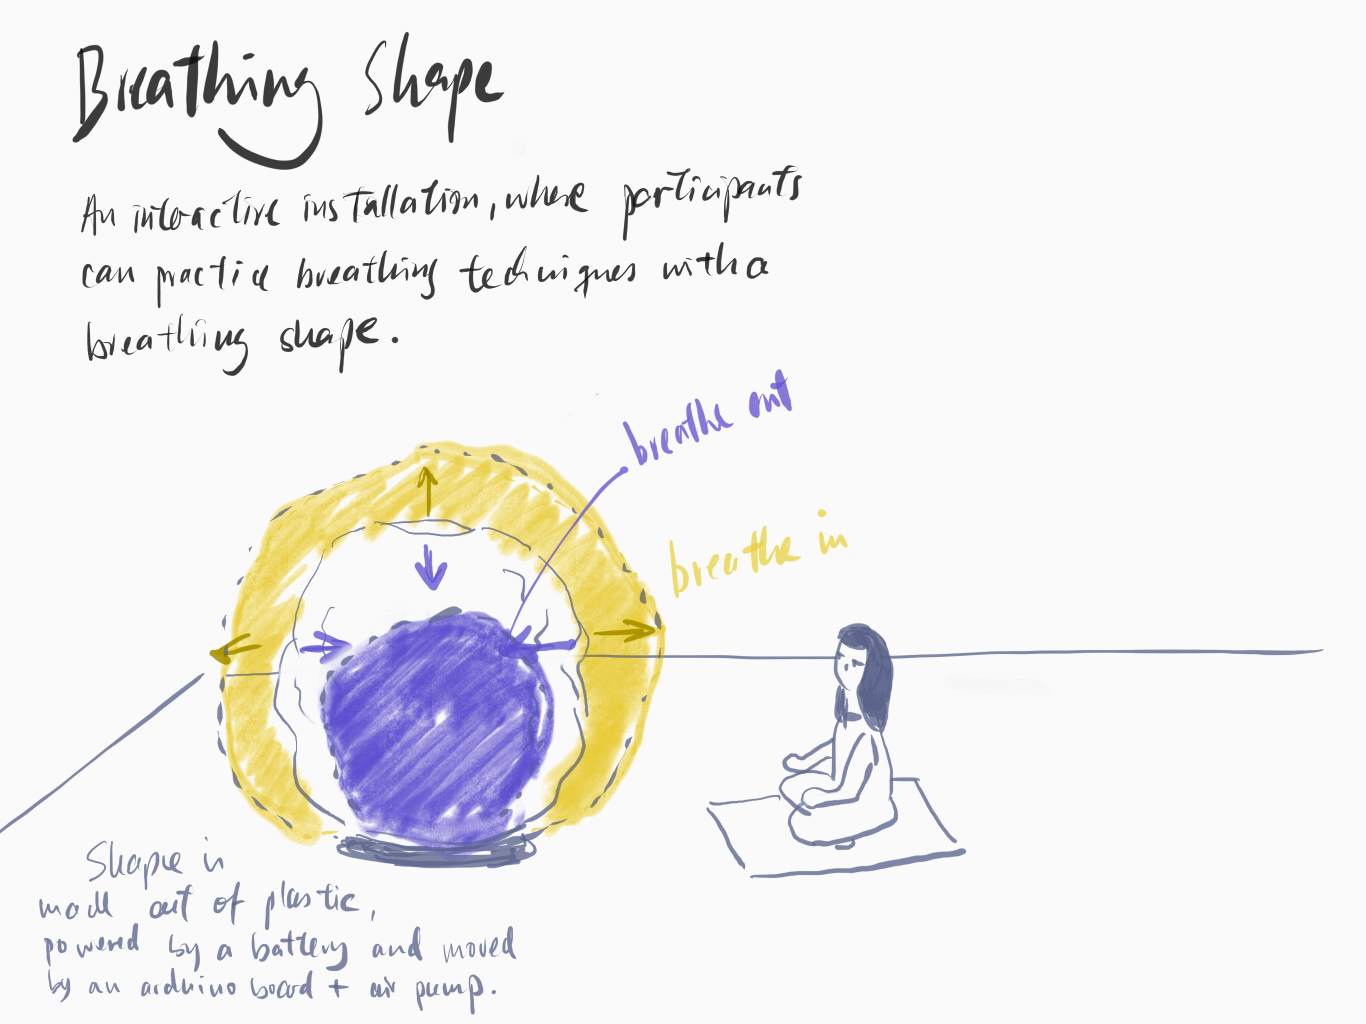 Breathing Shape
An interactive installation, where participants
can practice breathing techniques with a
breathing shape.
breathe out
breathe in
Shape is
made out of plastic,
powered by a battery and moved
by an arduino board + air pump.